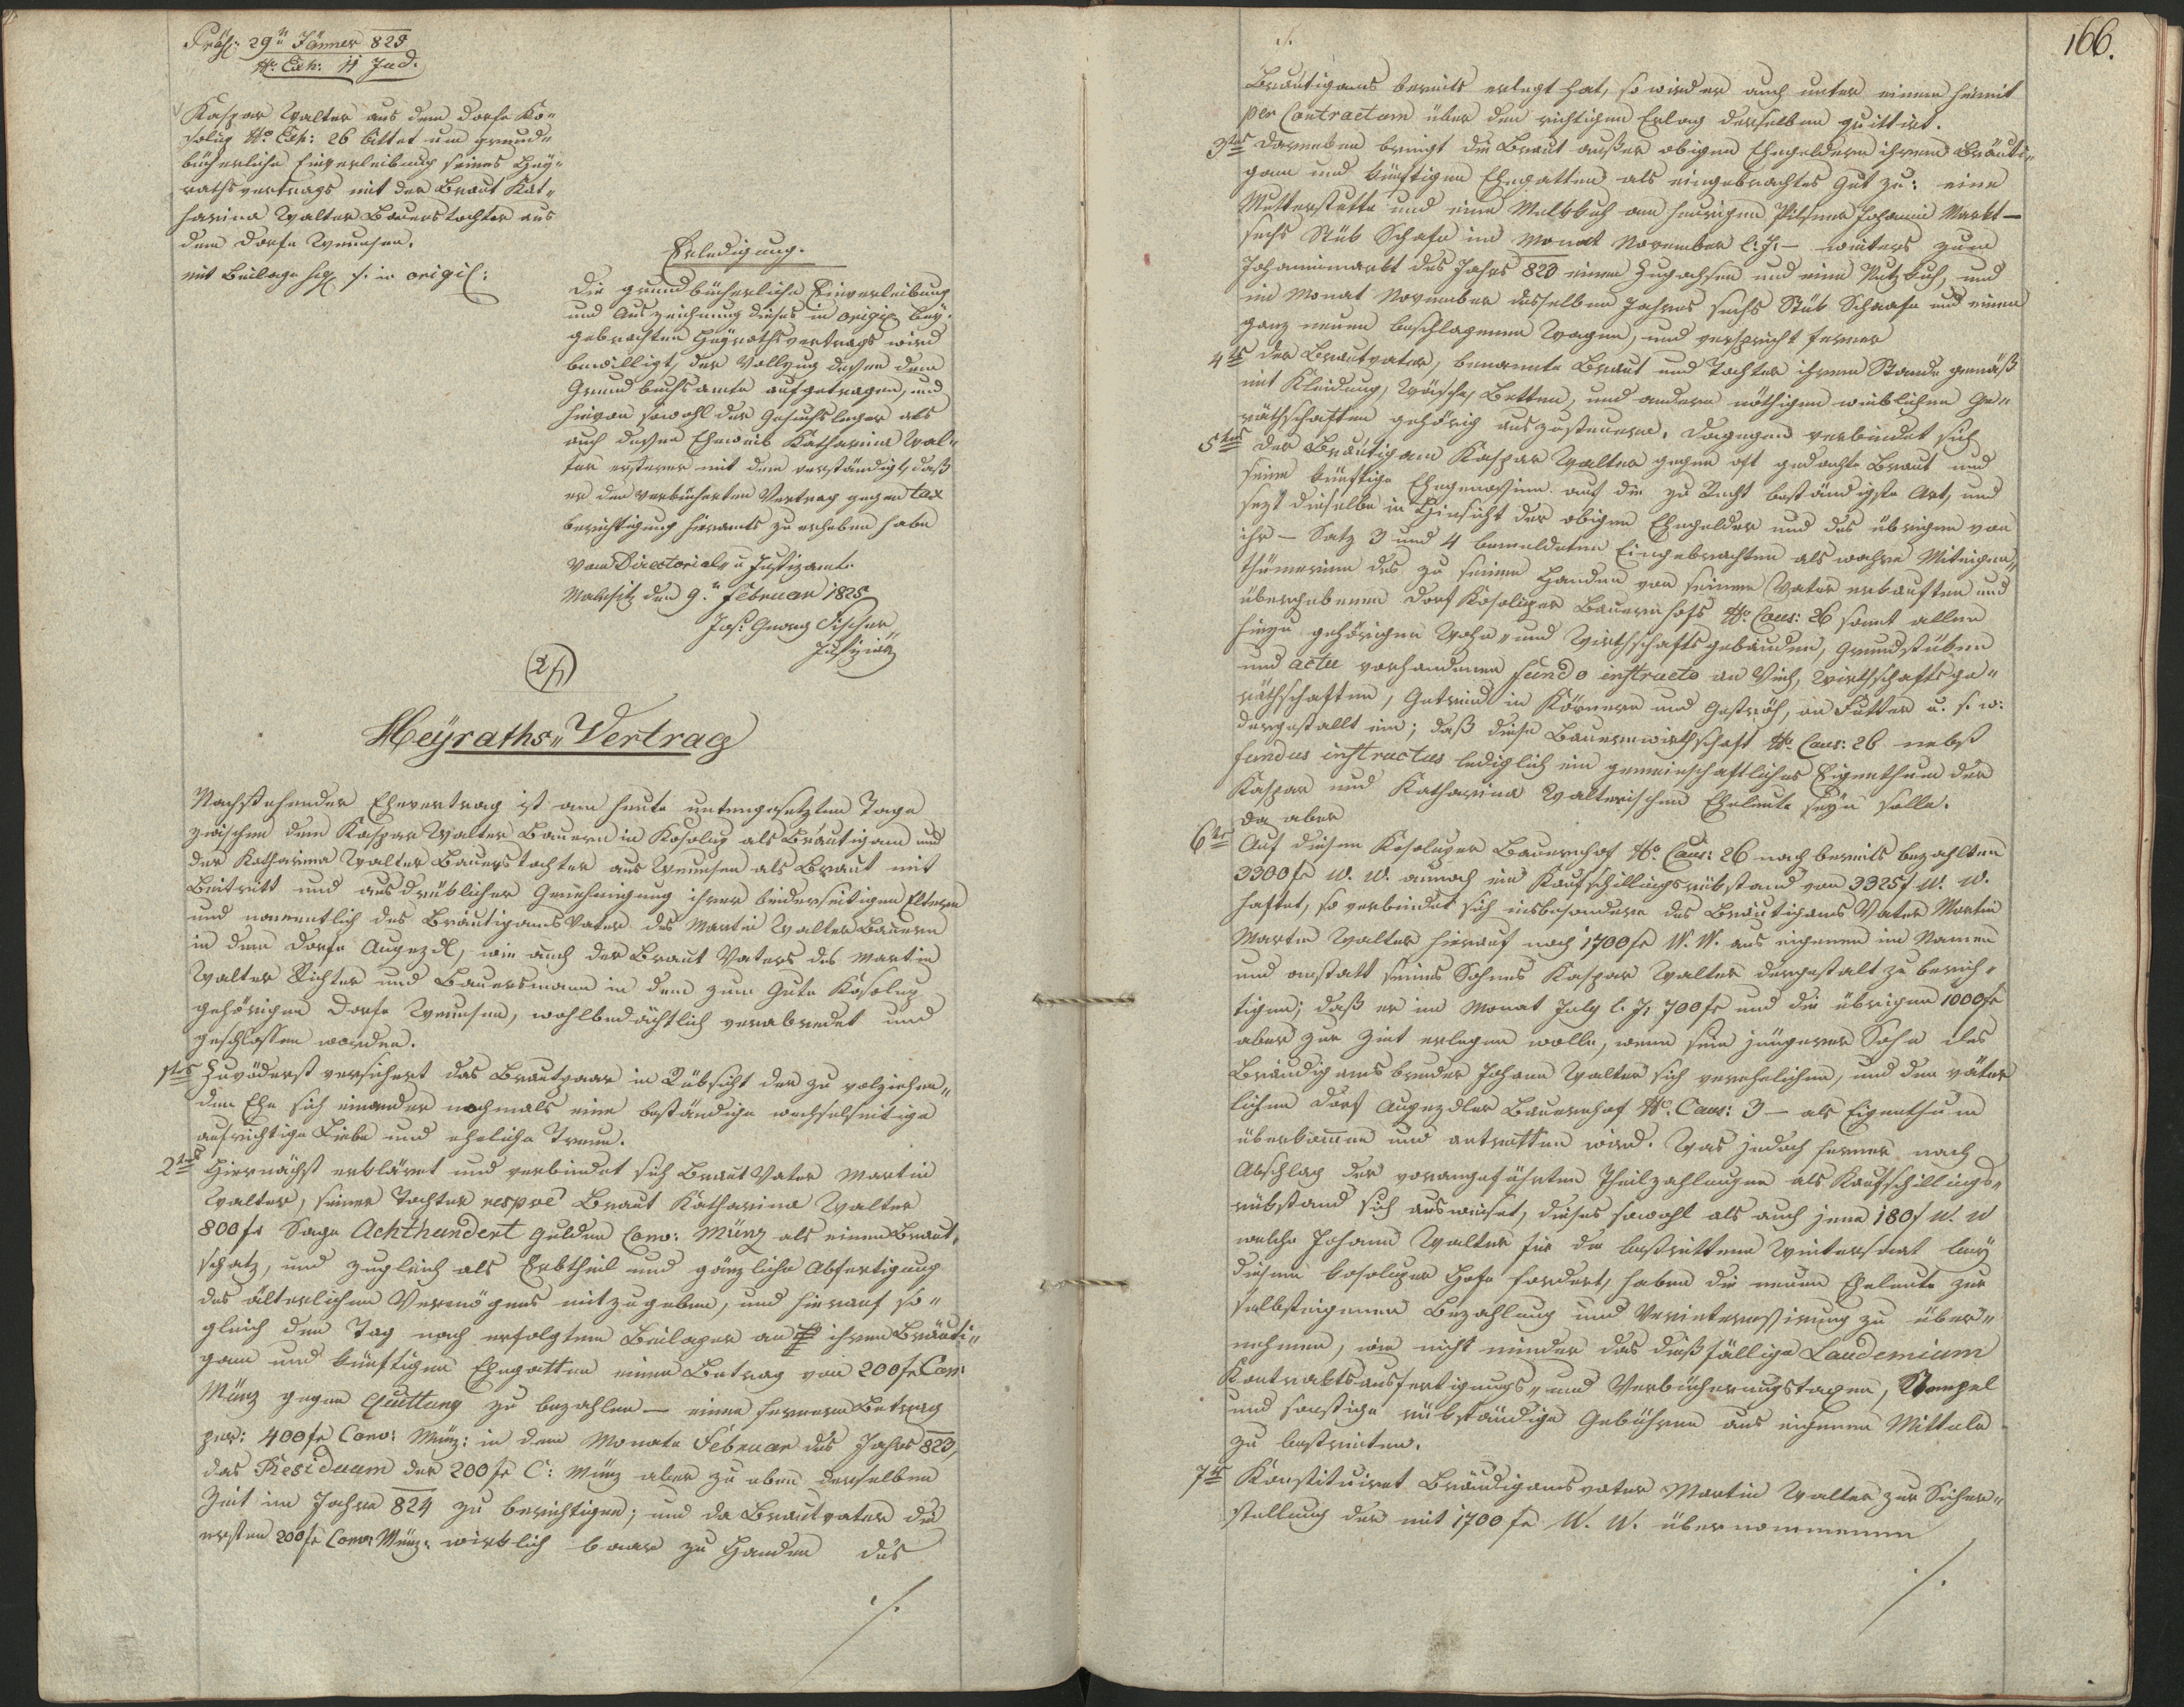 Präs: 29n Jänner 825
No. Exh: 11 Jud.
Kaspar Walter aus dem Dorfe Ko-
solup No. Exh: 26 bittet um grund-
bücherliche Einverleibung seines Hey-
rathsvertrags mit der Braut Kat-
harina Walter Bauerstochter aus
dem Dorfe Wenusen.
mit Beilage sig. /. in origil:
Erledigung.
Die grundbücherliche Einverleibung
und Auszeichnung dieses in origil. bey-
gebrachten Heyrathsvertrags wird
bewilligt, der Vollzug dessen dem
Grundbuchsamte aufgetragen, und
hievon sowohl der Gesuchsleger als
auch dessen Eheweib Katharina Wal-
ter ersterer mit dem verständigt, daß
er den verbücherten Vertrag gegen Tax
berichtigung hieramts zu erheben habe
Vom Directorial- u Justizamte
Malesitz den 9n Februar 1825
Jos: Georg Fischer
Justiziär
2/
Heyraths-Vertrag
Nachstehender Ehevertrag ist am heute untengesetzten Tage
zwischen dem Kaspar Walter Bauern in Kosolup als Bräutigam und
der Katharina Walter Bauerstochter aus Wenusen als Braut mit
Beitritt und ausdrüklicher Genehmigung ihrer beiderseitigen Eltern
und namentlich des Bräutigams Vater des Martin Walter Bauern
in dem Dorfe Augezdl, wie auch der Braut Vaters des Martin
Walter Richter und Bauersmann in dem zum Gute Kosolup
gehörigen Dorfe Wenusen, wohlbedächtlich verabredet und
geschlossen worden.
1tens Zuvöderst versichert das Brautpaar in Rüksicht der zu volziehen-
den Ehe sich einander nochmals eine beständige wechselseitige
aufrichtige Liebe und eheliche Treue.
2tens Hiernächst erkläret und verbindet sich Braut Vater Martin
Walter, seiner Tochter respve Braut Katharina Walter
800 fr Sage Achthundert Gulden Conv: Münz als einen Braut-
schatz, und zugleich als Erbtheil und gänzliche Abfertigung
des älterlichen Vermögens mitzugeben, und hierauf so-
gleich den Tag nach erfolgtem Beilager an ihren Bräuti-
gam und künftigen Ehegatten einen Betrag von 200 fr Con:
Münz gegen Quittung zu bezahlen — einen fernern Betrag
per: 400 fr Conv: Münz: in dem Monate Februar des Jahrs 823,
das Residuum der 200 fr C: Münz aber zu eben derselben
Zeit im Jahre 824 zu berichtigen; und da Brautvater die
ersten 200 fr Conv: Münz: wirklich baar zu Handen des
./.
166.
./.
Bräutigams bereits erlegt hat, so wird er auch unter einem hiemit
per Contractum über den richtigen Erlag derselben quittirt.
3tens Daneben bringt die Braut außer obigen Ehegeldern ihrem Bräuti-
gam und künftigen Ehegatten als eingebrachtes Gut zu: eine
Mutterstutte und eine Melkkuh am heurigen Pilsner Johanni Markt —
sechs Stük Schafe im Monat November l: J: — weiters zum
Johannimarkt des Jahrs 823 einen Zugochsen und eine Nutzkuh, und
im Monat November desselben Jahres sechs Stük Schaafe und einen
ganz neuen beschlagenen Wagen, und verspricht ferner
4tens der Brautvater, benannte Braut und Tochter ihrem Stande gemäß
mit Kleidung, Wäsche, Betten, und andern nöthigen weiblichen Ge-
räthschaften gehörig auszusteuern. Dagegen verbindet sich
5tens Der Bräutigam Kaspar Walter gegen oft gedachte Braut und
seine künftige Ehegenossinn auf die zu Recht beständigste Art, und
sezt dieselbe in Hinsicht der obigen Ehegelder und des übrigen von
ihr — Satz 3 und 4 bemeldeten Eingebrachten als wahre Miteigen-
thümerinn des zu seinen Handen von seinem Vater erkauften und
übergebenen Dorf Kosoluper Bauernhofs No. Cons: 26 samt allen
hiezu gehörigen Wohn- und Wirthschaftsgebäuden, Grundstüken
und actu vorhandenen fundo instructo an Vieh, Wirthschaftsge-
räthschaften, Getreid in Körnern und Geströh, an Futter u. s. w.
dergestallt ein; daß diese Bauernwirthschaft No. Cons: 26 nebst
fundus instructus lediglich ein gemeinschaftliches Eigenthum der
Kaspar und Katharina Walterischen Eheleute seyn solle.
Da aber
6tens Auf diesem Kosoluper Bauernhof No. Cons: 26 nach bereits bezahlten
3300 fr W. W. annoch ein Kaufschillingsrükstand von 3325 f W. W.
haftet, so verbindet sich insbesondere des Bräutigams Vater Martin
Martin Walter hierauf noch 1700 fr W. W. aus eigenem im Namen
und anstatt seines Sohnes Kaspar Walter dergestalt zu berich-
tigen; daß er im Monat July l. J: 700 fr und die übrigen 1000 fr
aber zur Zeit erlegen wolle, wenn sein jüngerer Sohn des
Bräudigams bruder Johann Walter sich verehelichen, und den väter
lichen Dorf Augezdler Bauernhof No. Cons: 3 — als Eigenthum
überkommen und antretten wird. Was jedoch ferner nach
Abschlag der vorangeführten Theilzahlungen als Kaufschillings-
rükstand sich ausweiset, dieses sowohl als auch jene 180 f W. W
welche Johann Walter für die bestrittene Wintersaat bey
diesem kosoluper Hofe fordert, haben die neuen Eheleute zur
selbsteigenen Bezahlung und Verinteressirung zu über-
nehmen, wie nicht minder das dießfällige Laudemium
Kontraktsausfertigungs- und Verbücherungstaxen, Stempel
und sonstige rükständige Gebühren aus eigenen Mitteln
zu bestreiten.
7tens Konstituiret Bräudigamsvater Martin Walter zur Sicher-
stellung der mit 1700 fr W. W. übernommenen
./.